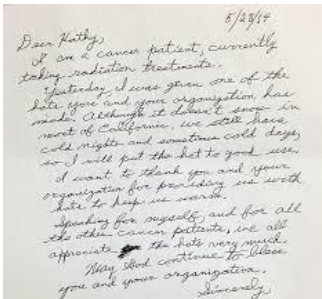 5/23/14
Dear Kathy,
I am a cancer patient, currently
taking radiation treatments.
Yesterday, I was given one of the
hats you and your organization has
made. Although it doesn't snow in
most of California, we still have
cold nights and sometimes cold days,
so I will put the hat to good use.
I want to thank you and your
organization for providing us with
hats to keep us warm.
Speaking for myself, and for all
the other cancer patients, we all
appreciate the hats very much.
May God continue to bless
you and your organization.
Sincerely,